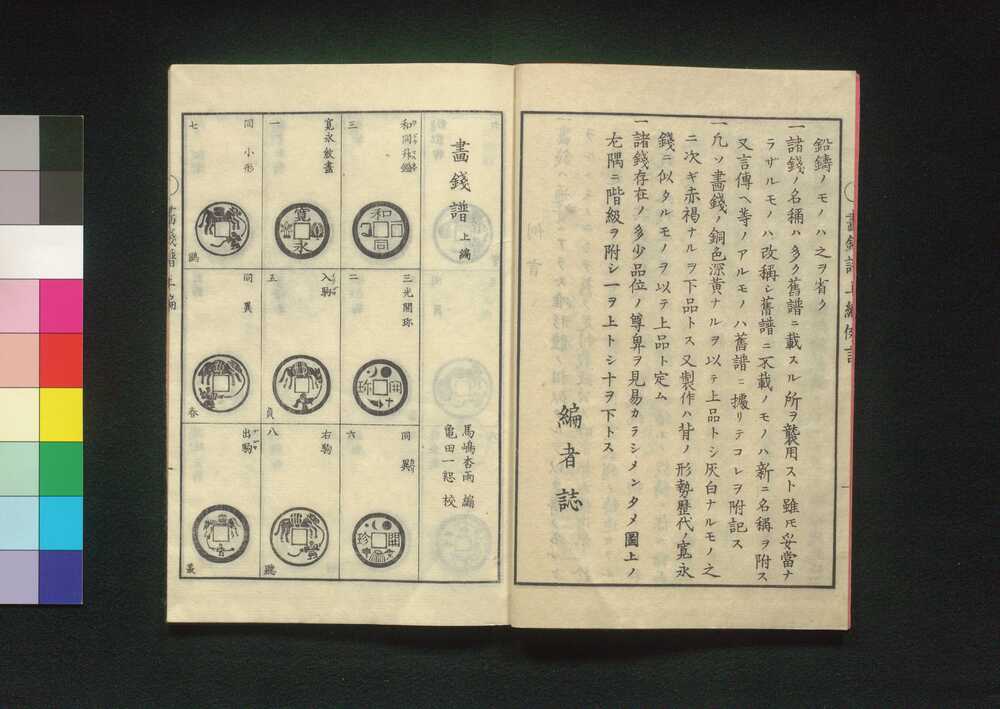 鉛鑄ノモノハ之ヲ省ク
一諸錢ノ名稱ハ多ク舊譜ニ載スル所ヲ襲用スト雖モ妥當ナ
ラザルモノハ改稱シ舊譜ニ不載ノモノハ新ニ名稱ヲ附ス
又言傳ヘ等ノアルモノハ舊譜ニ據リテコレヲ附記ス
一凡ソ畵錢ノ銅色深黄ナルヲ以テ上品トシ灰白ナルモノ之
ニ次ギ赤褐ナルヲ下品トス又製作ハ背ノ形勢歴代ノ寛永
錢ニ似タルモノヲ以テ上品ト定ム
一諸錢存在ノ多少品位ノ尊卑ヲ見易カラシメンタメ圖上ノ
左隅ニ階級ヲ附シ一ヲ上トシ十ヲ下トス
編者誌
畵錢譜 上編
馬嶋杏雨 編
亀田一恕 校
和同
三
和同
三光開珎
二
開珎
同異
六
開珍
寛永
一
寛永
入駒
五
貞
右駒
八
聽
同小形
七
鷗
同異
春
出駒
叢